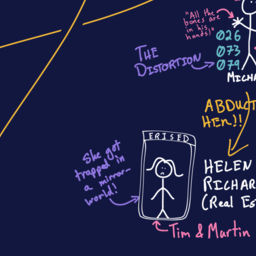 "All the
bones are
in his
hands!"
026
073
079
THE
DISTORTION
MICHA
ABDUCT
HER!!
ERISED
She got
trapped in
a mirror-
world!
HELEN
RICHAR
(Real Es
Tim & Martin